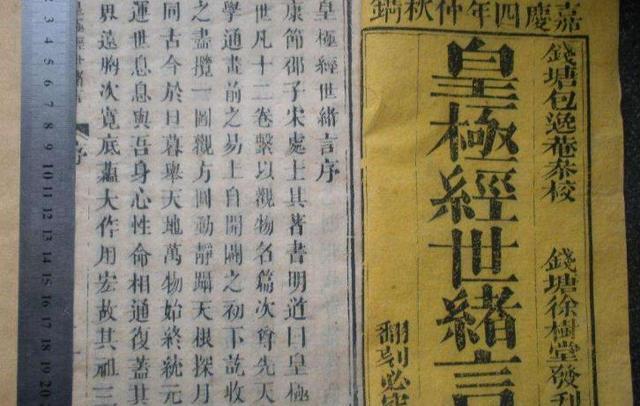 嘉慶四年仲秋鐫
錢塘包逸菴叅校 錢塘徐樹堂發刊
皇極經世緒言
翻刻必
皇極經世緒言序
康節邵子宋處士其著書明道曰皇極
世凡十二卷繫以觀物名篇次尊先天
學通畫前之易上自開闢之初下訖收
之盡攬一圖觀方圓動靜躡天根探月
同古今於日暮舉天地萬物始終統元
運世息息與吾身心性命相通復蓋其
界遠胸次寬底蘊大作用宏故其祖三
序
2 3 4 5 6 7 8 9 10 11 12 13 14 15 16 17 18 19 20